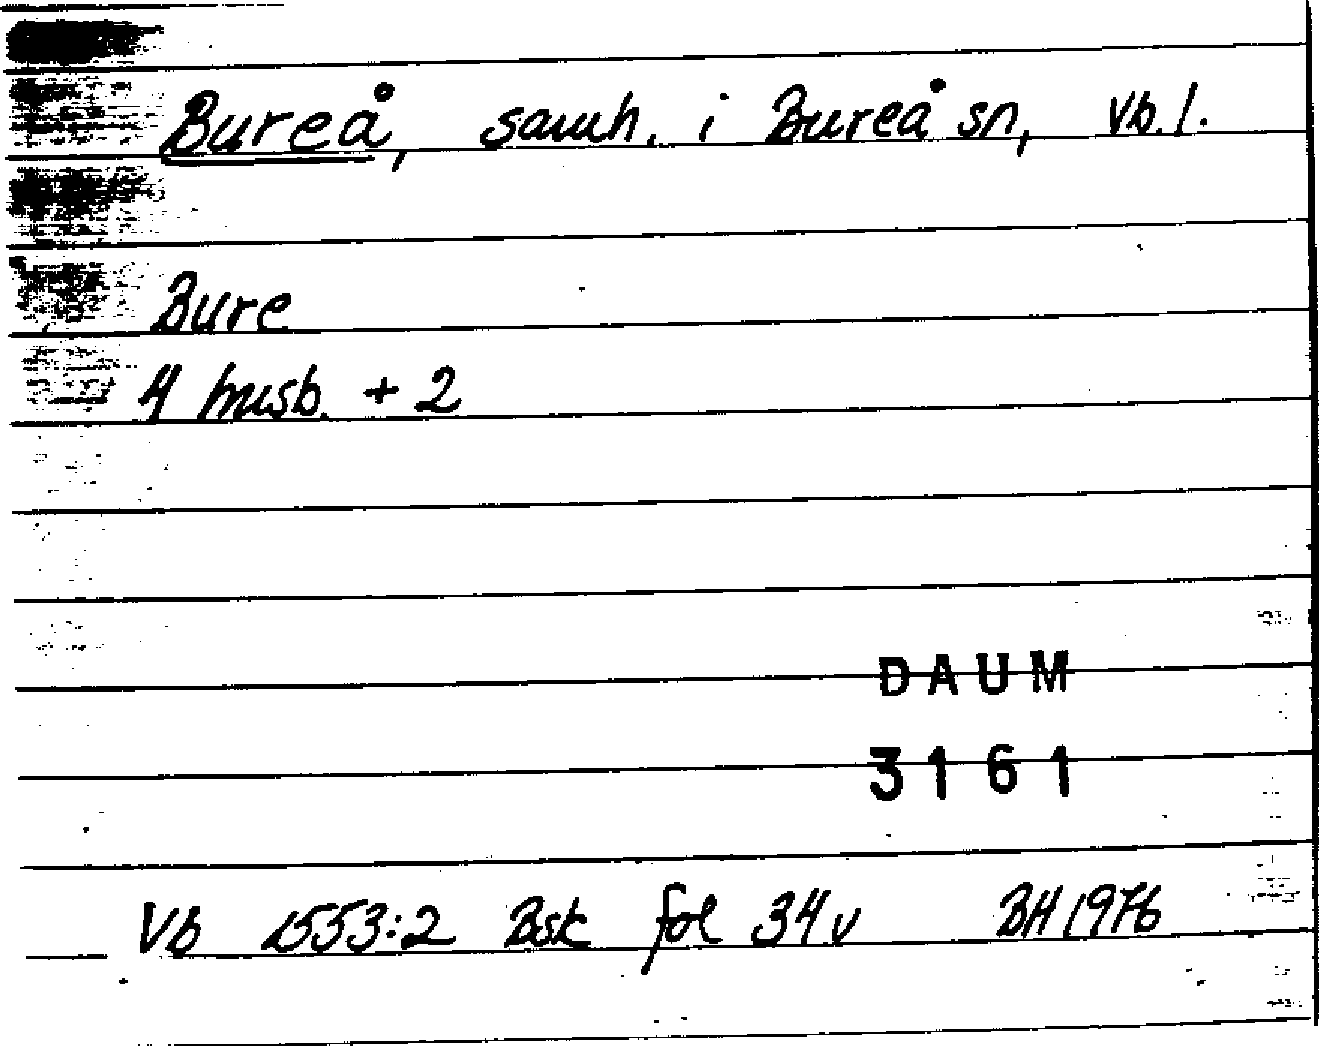 Bureå, samh. i Bureå sn, Vb. l.
Bure
4 husb. + 2
DAUM
3161
Vb 1553:2 Bsk fol 34v BH 1976